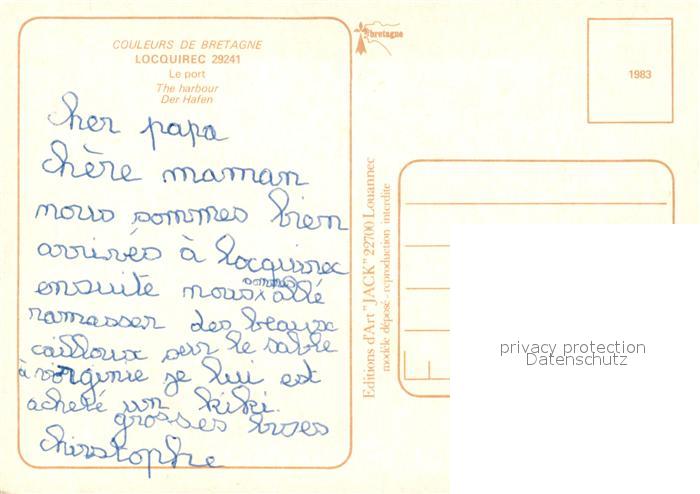 COULEURS DE BRETAGNE
LOCQUIREC 29241
Le port
The harbour
Der Hafen
cher papa
chère maman
nous sommes bien
arrivés à locquirec
ensuite nous sommes allé
ramasser des beaux
cailloux sur le sable
à virginie je lui est
acheté un kiki.
grosses bises
christophe
bretagne
1983
Editions d'Art "JACK" 22700 Louannec
modèle déposé - reproduction interdite
privacy protection
Datenschutz